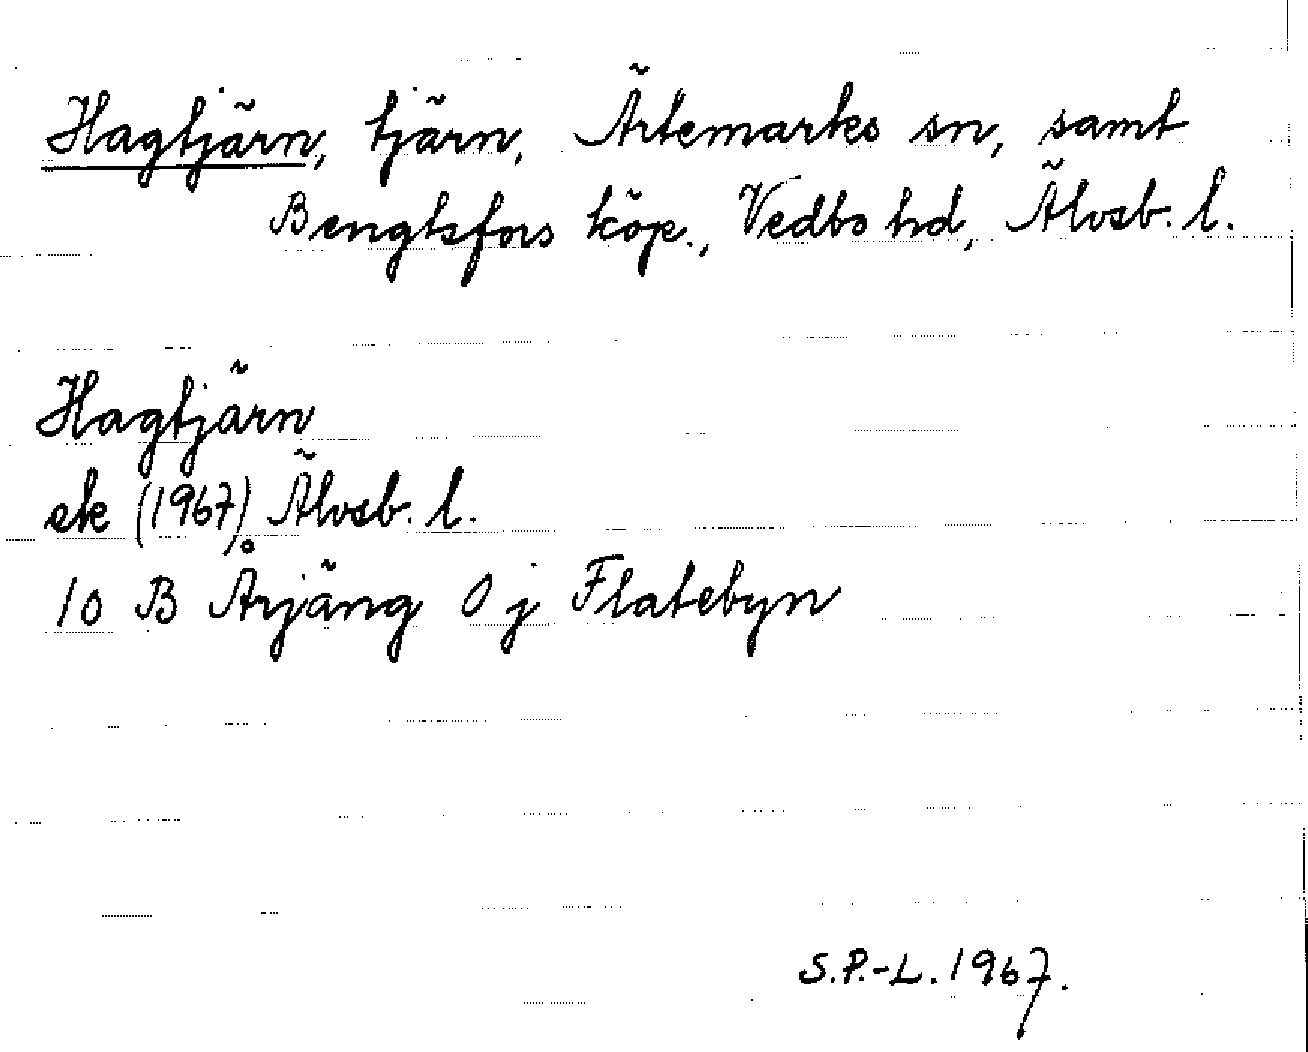 Hagtjärn, tjärn, Ärtemarks sn, samt
Bengtsfors köp., Vedbo hd, Älvsb. l.
Hagtjärn
ek (1967) Älvsb. l.
10 B Årjäng 0 j Flatebyn
S.P.-L. 1967.